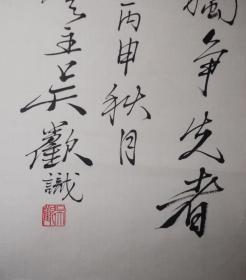 争先者
丙申秋月
主吴歡識